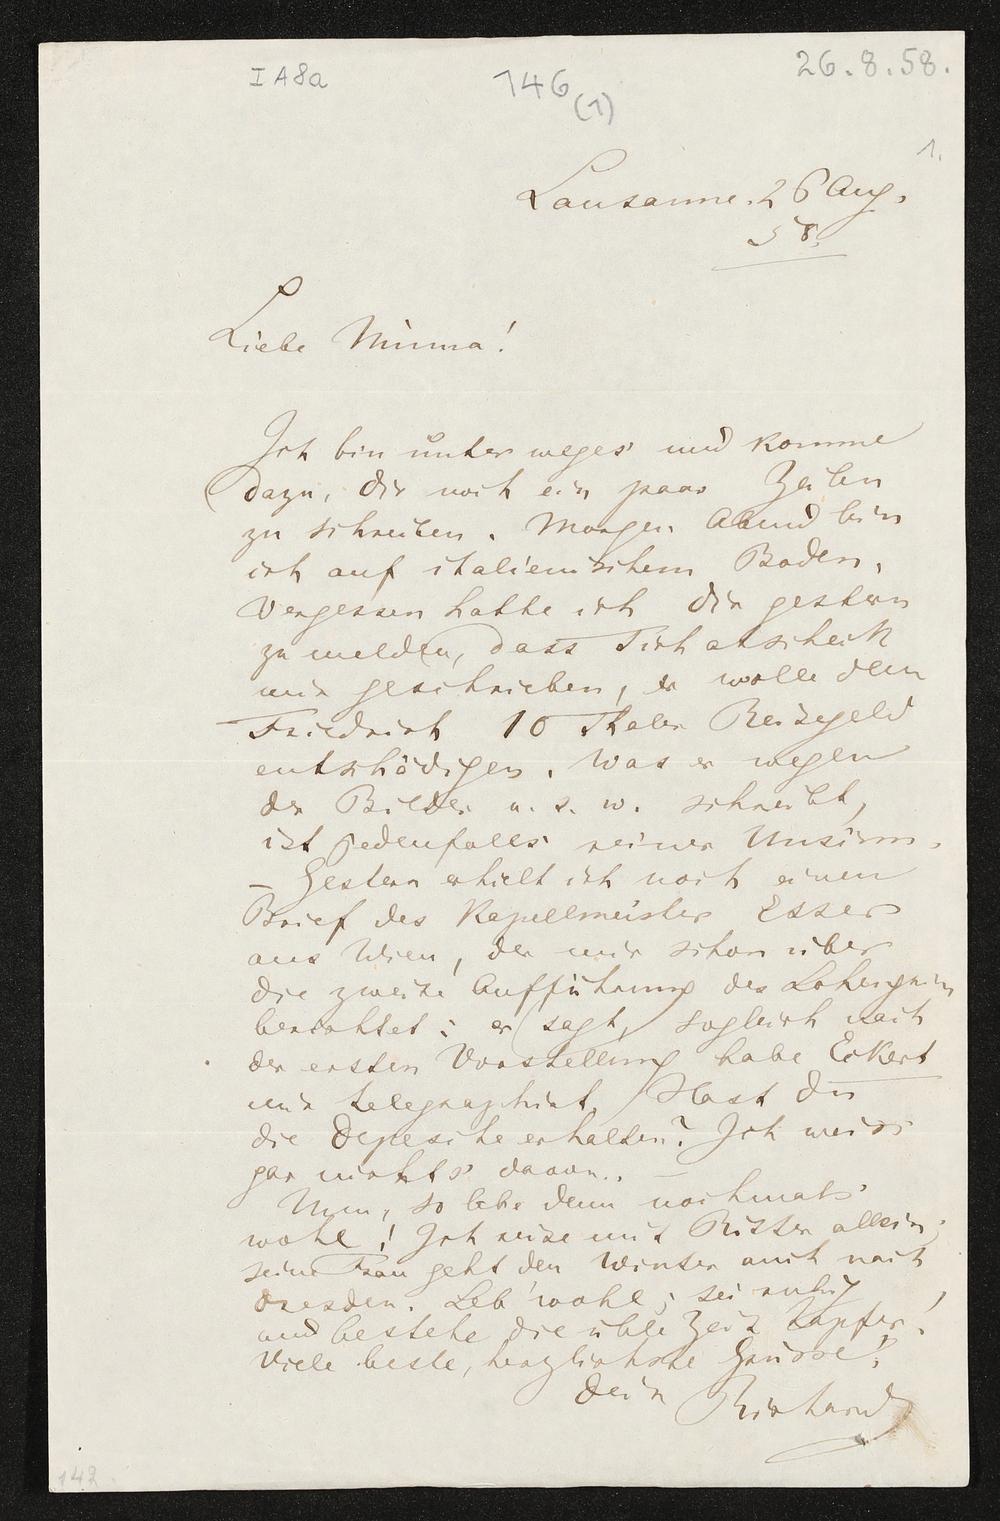 I A8a
146
(1)
26.8.58.
1.
Lausanne. 26 Aug.
58.
Liebe Minna!
Ich bin unterweges und komme
dazu, dir noch ein paar Zeilen
zu schreiben. Morgen Abend bin
ich auf italienischem Boden.
Vergessen hatte ich dir gestern
zu melden, dass Tichatscheck
mir geschrieben, er wolle dem
Friedrich 10 Thaler Reisegeld
entschädigen. Was er wegen
der Bilder u. s. w. schreibt,
ist jedenfalls reiner Unsinn.
– Gestern erhielt ich noch einen
Brief des Kapellmeister Esser
aus Wien, der mir schon über
die zweite Aufführung des Lohengrin
berichtet: er sagt, sogleich nach
der ersten Vorstellung habe Eckert
mir telegraphirt. Hast du
die Depesche erhalten? Ich weiss
gar nichts davon. –
Nun, so lebe denn nochmals
wohl! Ich reise mit Ritter allein;
seine Frau geht den Winter auch nach
Dresden. Leb' wohl; sei ruhig
und bestehe die üble Zeit tapfer!
Viele beste, herzlichste Grüsse!
Dein Richard
142